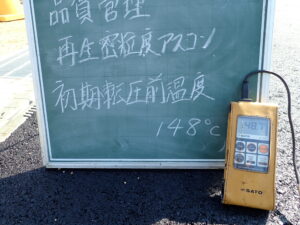 品質管理
再生密粒度アスコン
初期転圧前温度
148℃
148.7
SATO